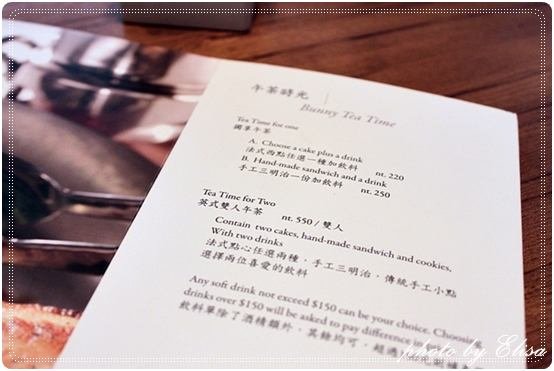 午茶時光
Bunny Tea Time
Tea Time for one
獨享午茶
A. Choose a cake plus a drink
法式西點任選一種加飲料 nt. 220
B. Hand-made sandwich and a drink
手工三明治一份加飲料 nt. 250
Tea Time for Two
英式雙人午茶 nt. 550 / 雙人
Contain two cakes, hand-made sandwich and cookies,
With two drinks
法式點心任選兩種，手工三明治，傳統手工小點
選擇兩位喜愛的飲料
Any soft drink not exceed $150 can be your choice. Choosing
drinks over $150 will be asked to pay difference in
飲料單除了酒精類外，其餘均可，超過
photo by Elisa